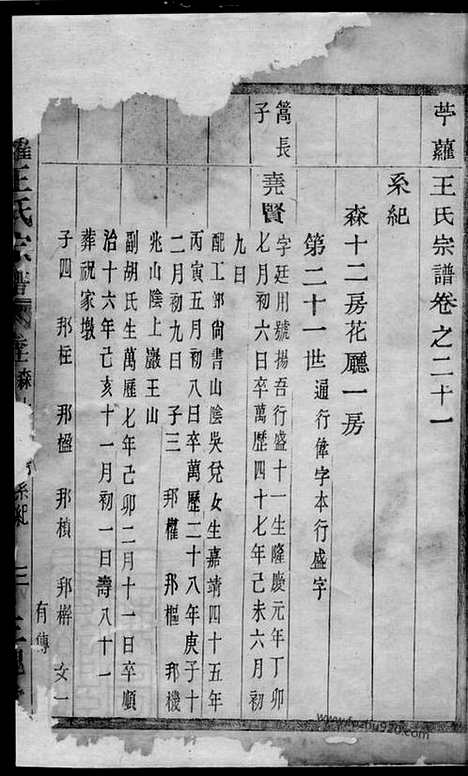 苧蘿王氏宗譜卷之二十一
系紀
森十二房花廳一房
第二十一世通行偉字本行盛字
蒿長子
堯賢
字廷用號揚吾行盛十一生隆慶元年丁卯
七月初六日卒萬歷四十七年己未六月初
九日
配工部尙書山陰吳兌女生嘉靖四十五年
丙寅五月初八日卒萬歷二十八年庚子十
二月初九日 子三 邦權 邦樞 邦機
兆山陰上巖王山
副胡氏生萬歷七年己卯二月十一日卒順
治十六年己亥十一月初一日壽八十一
葬祝家墩
子四 邦柱 邦楹 邦楨 邦檞 女一
有傳
王氏宗譜
系紀
三